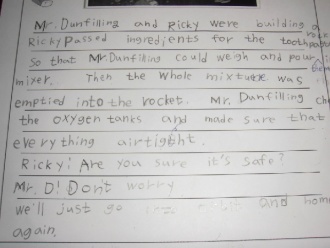 Mr. Dunfilling and Ricky were building a
Ricky passed ingredients for the toothpaste
So that Mr Dunfilling could weigh and pour
mixer. Then the whole mixture was
emptied into the rocket. Mr. Dunfilling
the oxygen tanks and made sure that
everything airtight.
Ricky! Are you sure it's safe?
Mr. D! Don't worry
we'll just go and home
again.